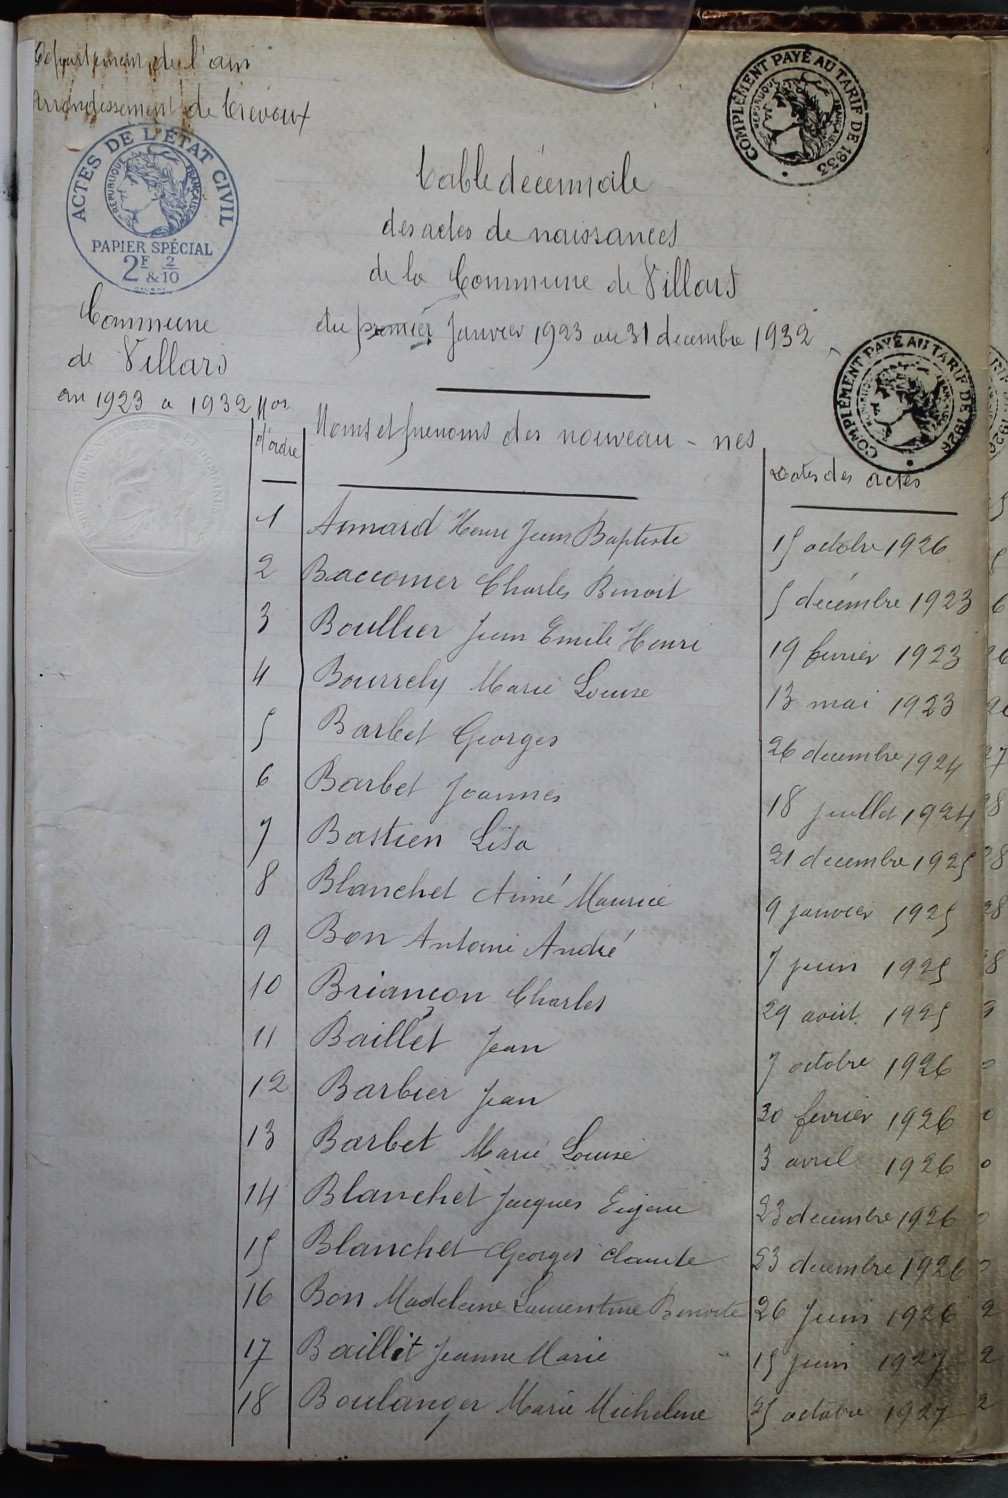 Département de l'ain
Arrondissement de Trévoux
COMPLÉMENT PAYÉ AU TARIF DE 1933
RÉPUBLIQUE FRANÇAISE
ACTES DE L'ÉTAT CIVIL
RÉPUBLIQUE FRANÇAISE
PAPIER SPÉCIAL
2F 2/10
& 10
Table décennale
des actes de naissances
de la Commune de Villars
du premier Janvier 1923 au 31 decembre 1932
COMPLÉMENT PAYÉ AU TARIF DE 1926
Commune
de Villars
an 1923 a 1932
Nos d'ordre
Noms et prenoms des nouveau-nes
Dates des actes
1 Aimard Henri Jean Baptiste 15 octobre 1926
2 Baccomer Charles Benoit 5 décembre 1923
3 Boullier Jean Emile Henri 19 fevrier 1923
4 Bourrely Marie Louise 13 mai 1923
5 Barbet Georges 26 decembre 1924
6 Barbet Joannes 18 juillet 1924
7 Bastien Lisa 21 decembre 1925
8 Blanchet Aimé Maurice 9 janvier 1925
9 Bon Antoine André 7 juin 1925
10 Briançon Charles 29 aout 1925
11 Baillet Jean 7 octobre 1926
12 Barbier Jean 20 fevrier 1926
13 Barbet Marie Louise 3 avril 1926
14 Blanchet Jacques Eugene 23 decembre 1926
15 Blanchet Georges Claude 23 decembre 1926
16 Bon Madeleine Laurentine Benoite 26 Juin 1926
17 Baillet Jeanne Marie 15 juin 1927
18 Boulanger Marie Micheline 25 octobre 1927